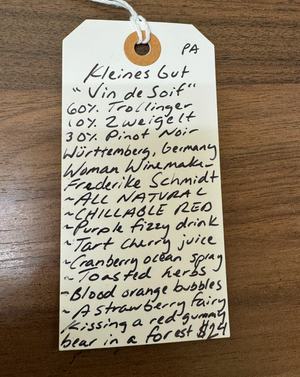 PA
Kleines Gut
"Vin de Soif"
60% Trollinger
10% Zweigelt
30% Pinot Noir
Württemberg, Germany
Woman Winemaker
Frederike Schmidt
~ALL NATURAL
~CHILLABLE RED
~Purple fizzy drink
~Tart cherry juice
~Cranberry ocean spray
~Toasted herbs
~Blood orange bubbles
~A strawberry fairy
kissing a red gummy
bear in a forest $24